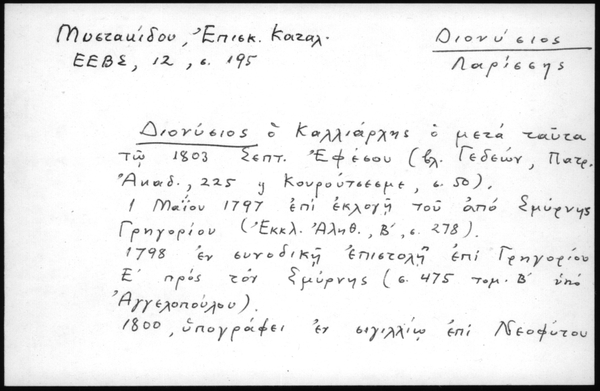 Μυστακίδου, Ἐπισκ. Καταλ.
ΕΕΒΣ, 12, σ. 195
Διονύσιος
Λαρίσσης
Διονύσιος ὁ Καλλιάρχης ὁ μετά ταῦτα
τῷ 1803 Σεπτ. Ἐφέσου (βλ. Γεδεών, Πατρ.
Ἀκαδ., 225 ἤ Κουρούτσεσμε, σ. 50).
1 Μαΐου 1797 ἐπί ἐκλογῇ τοῦ ἀπό Σμύρνης
Γρηγορίου (Ἐκκλ. Ἀληθ., Β', σ. 278).
1798 ἐν συνοδικῇ ἐπιστολῇ ἐπί Γρηγορίου
Ε' πρός τόν Σμύρνης (σ. 475 τομ. Β' ὑπό
Ἀγγελοπούλου).
1800, ὑπογράφει ἐν σιγιλλίῳ ἐπί Νεοφύτου